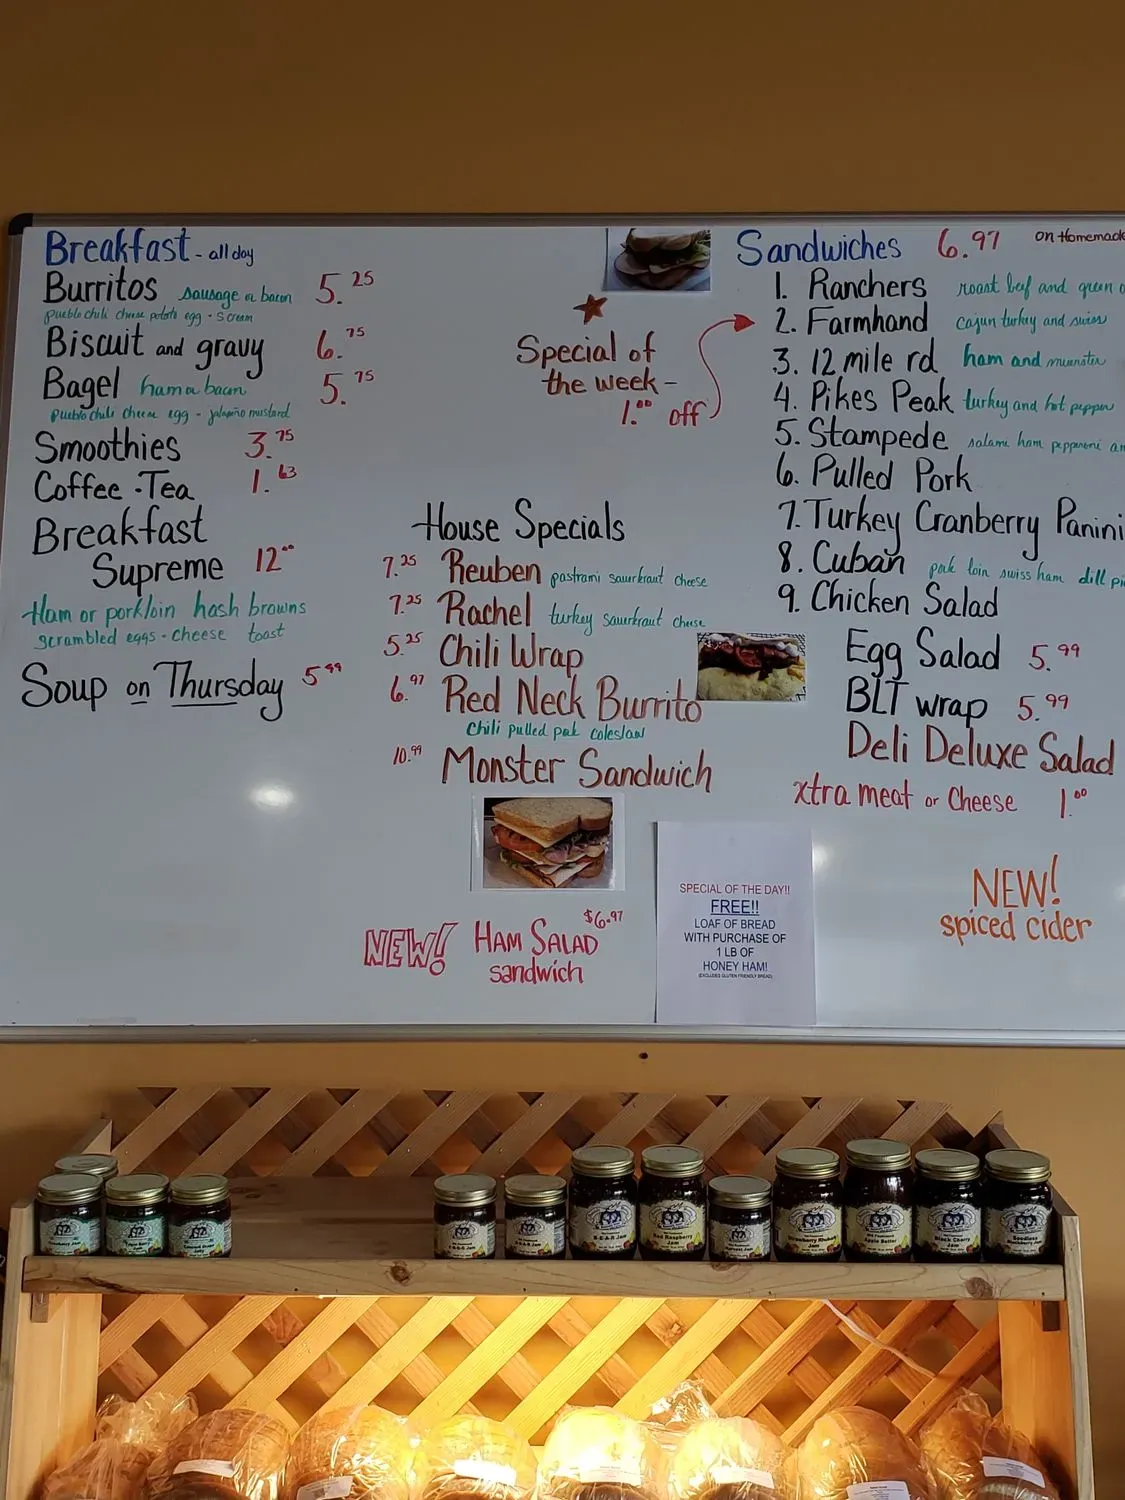 Breakfast - all day
Burritos sausage or bacon 5.25
pueblo chili cheese potato egg - s cream
Biscuit and gravy 6.75
Bagel ham or bacon 5.75
pueblo chili cheese egg - jalapeño mustard
Smoothies 3.75
Coffee · Tea 1.63
Breakfast
Supreme 12.00
Ham or porkloin hash browns
scrambled eggs - cheese toast
Soup on Thursday 5.99
Special of
the week -
1.00 off
House Specials
7.25 Reuben pastrami saurkraut cheese
7.25 Rachel turkey saurkraut cheese
5.25 Chili Wrap
6.97 Red Neck Burrito
chili pulled pork coleslaw
10.99 Monster Sandwich
NEW! HAM SALAD $6.97
sandwich
SPECIAL OF THE DAY!!
FREE!!
LOAF OF BREAD
WITH PURCHASE OF
1 LB OF
HONEY HAM!
(EXCLUDES GLUTEN FRIENDLY BREAD)
Sandwiches 6.97 on Homemade
1. Ranchers roast beef and green
2. Farmhand cajun turkey and swiss
3. 12 mile rd ham and muenster
4. Pikes Peak turkey and hot pepper
5. Stampede salami ham pepperoni
6. Pulled Pork
7. Turkey Cranberry Panini
8. Cuban pork loin swiss ham dill
9. Chicken Salad
Egg Salad 5.99
BLT wrap 5.99
Deli Deluxe Salad
xtra meat or Cheese 1.00
NEW!
spiced cider
B-E-A-R Jam
Red Raspberry
Jam
Harvest Jam
Strawberry Rhubarb
Jam
Apple Butter
Black Cherry
Jam
Seedless
Blackberry Jam